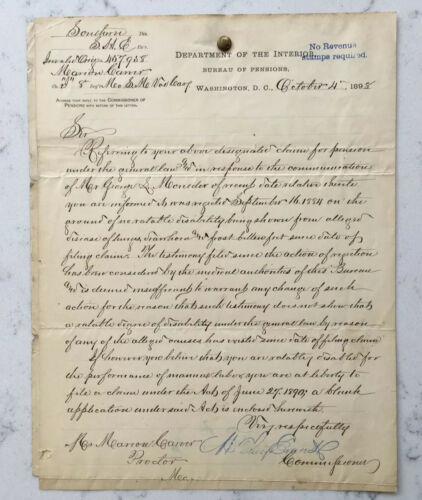 Southern Div.
No Revenue
stamps required.
DEPARTMENT OF THE INTERIOR,
BUREAU OF PENSIONS,
WASHINGTON, D. C., October 4", 1898
Marion Carver
Mo. Vol Cav
ADDRESS YOUR REPLY TO THE COMMISSIONER OF
PENSIONS WITH RETURN OF THIS LETTER.
Sir
Referring to your above designated claim for pension
under the general law & in response to the communication
of Mr George L. of recent date relative thereto
you are informed it was rejected September 16, 1884 on the
ground of no ratable disability being shown from alleged
disease of lungs, diarrhoea & frost bitten feet since date of
filing claim. The testimony filed since the action of rejection
has been considered by the medical authorities of this Bureau
& is deemed insufficient to warrant any change of such
action for the reason that such testimony does not show that
a ratable degree of disability under the general law by reason
of any of the alleged causes has existed since date of filing claim
If however you believe that you are ratably disabled for
the performance of manual labor you are at liberty to
file a claim under the Act of June 27, 1890; a blank
application under said Act is enclosed herewith.
Very respectfully
Mr Marion Carver
Proctor
Commissioner
Mo.